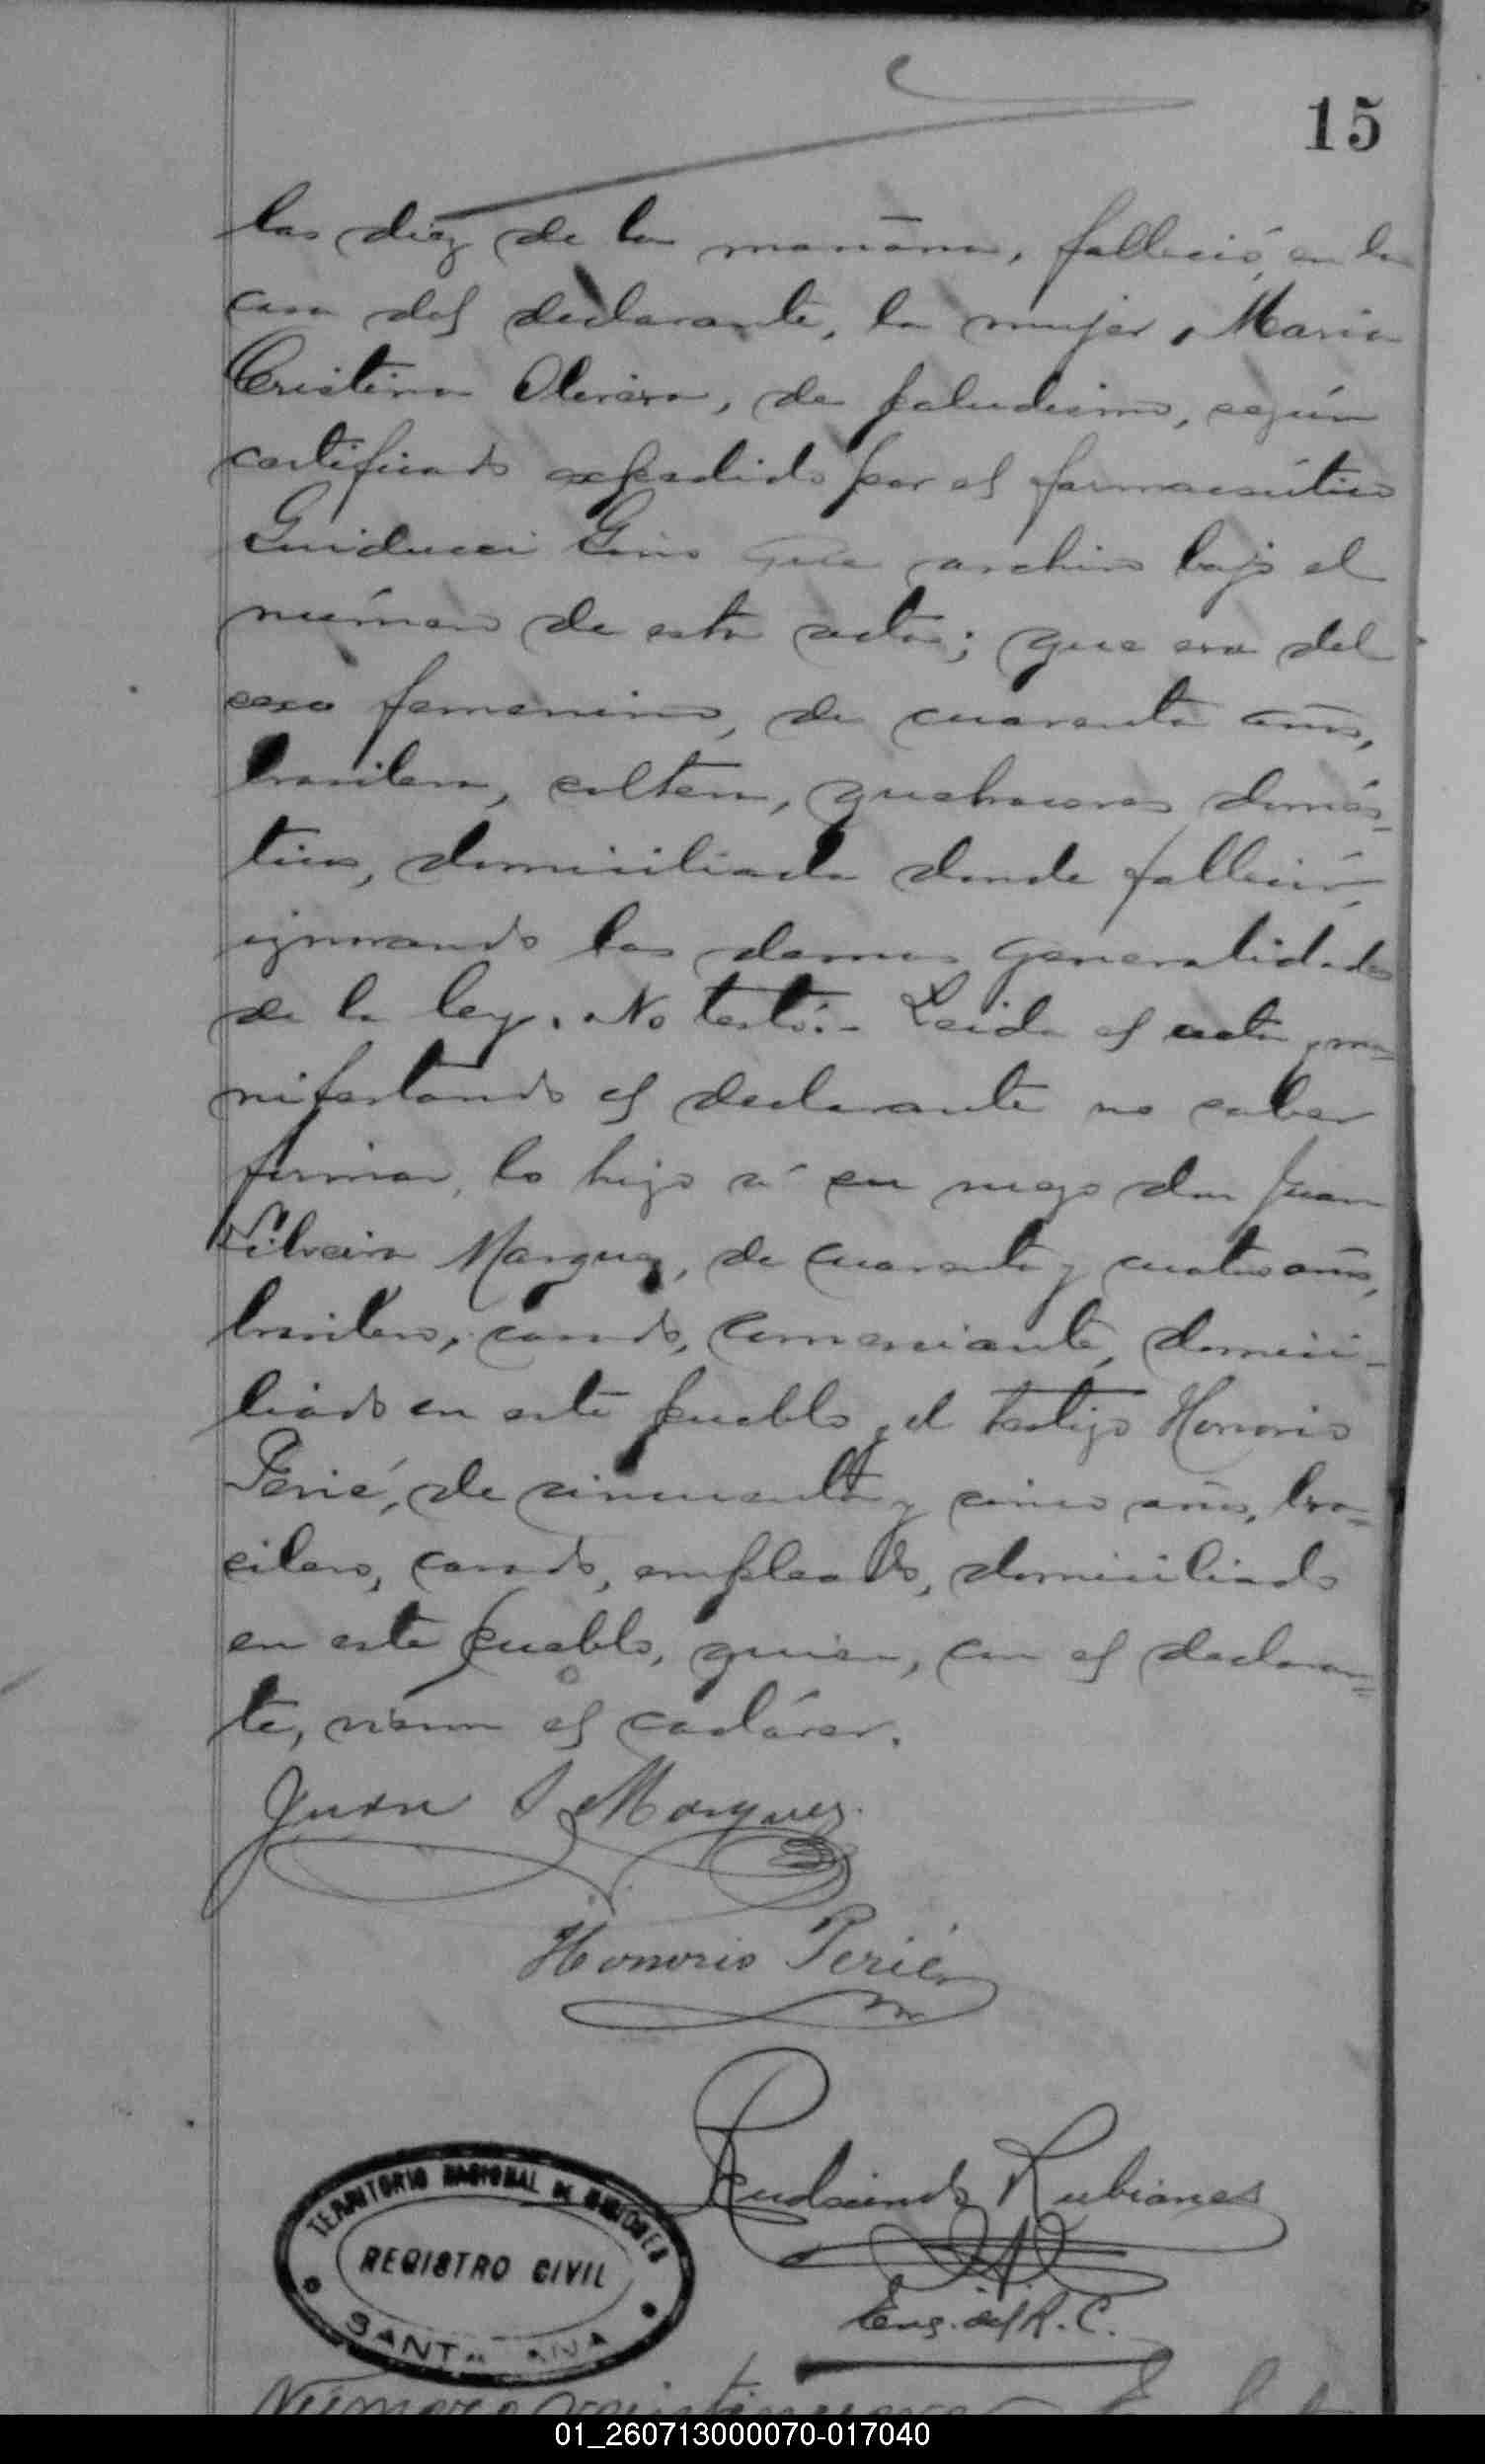 15
las diez de la mañana, falleció en la
casa del declarante, la mujer, Maria
Cristina Oliveira, de paludismo, según
certificado expedido por el farmacéutico
Guiducci Gino que archivo bajo el
número de esta acta; que era del
sexo femenino, de cuarenta años,
brasilera, soltera, quehaceres domés-
ticos, domiciliada donde falleció,
ignorando las demas generalidades
de la ley. No testó.- Leida el acta, ma=
nifestando el declarante no saber
firmar, lo hizo á su ruego don Juan
Silveira Marquez, de cuarenta y cuatro años,
brasilero, casado, comerciante, domici-
liado en este pueblo, y el testigo Honorio
Perié, de cincuenta y cinco años, bra=
silero, casado, empleado, domiciliado
en este pueblo, quien, con el declaran=
te, vieron el cadáver.
Juan S Marquez.
Honorio Perié
Rudecindo Rubianes
Enc. del R. C.
TERRITORIO NACIONAL DE MISIONES
REGISTRO CIVIL
SANTA ANA
Número veintinueve
01_260713000070-017040